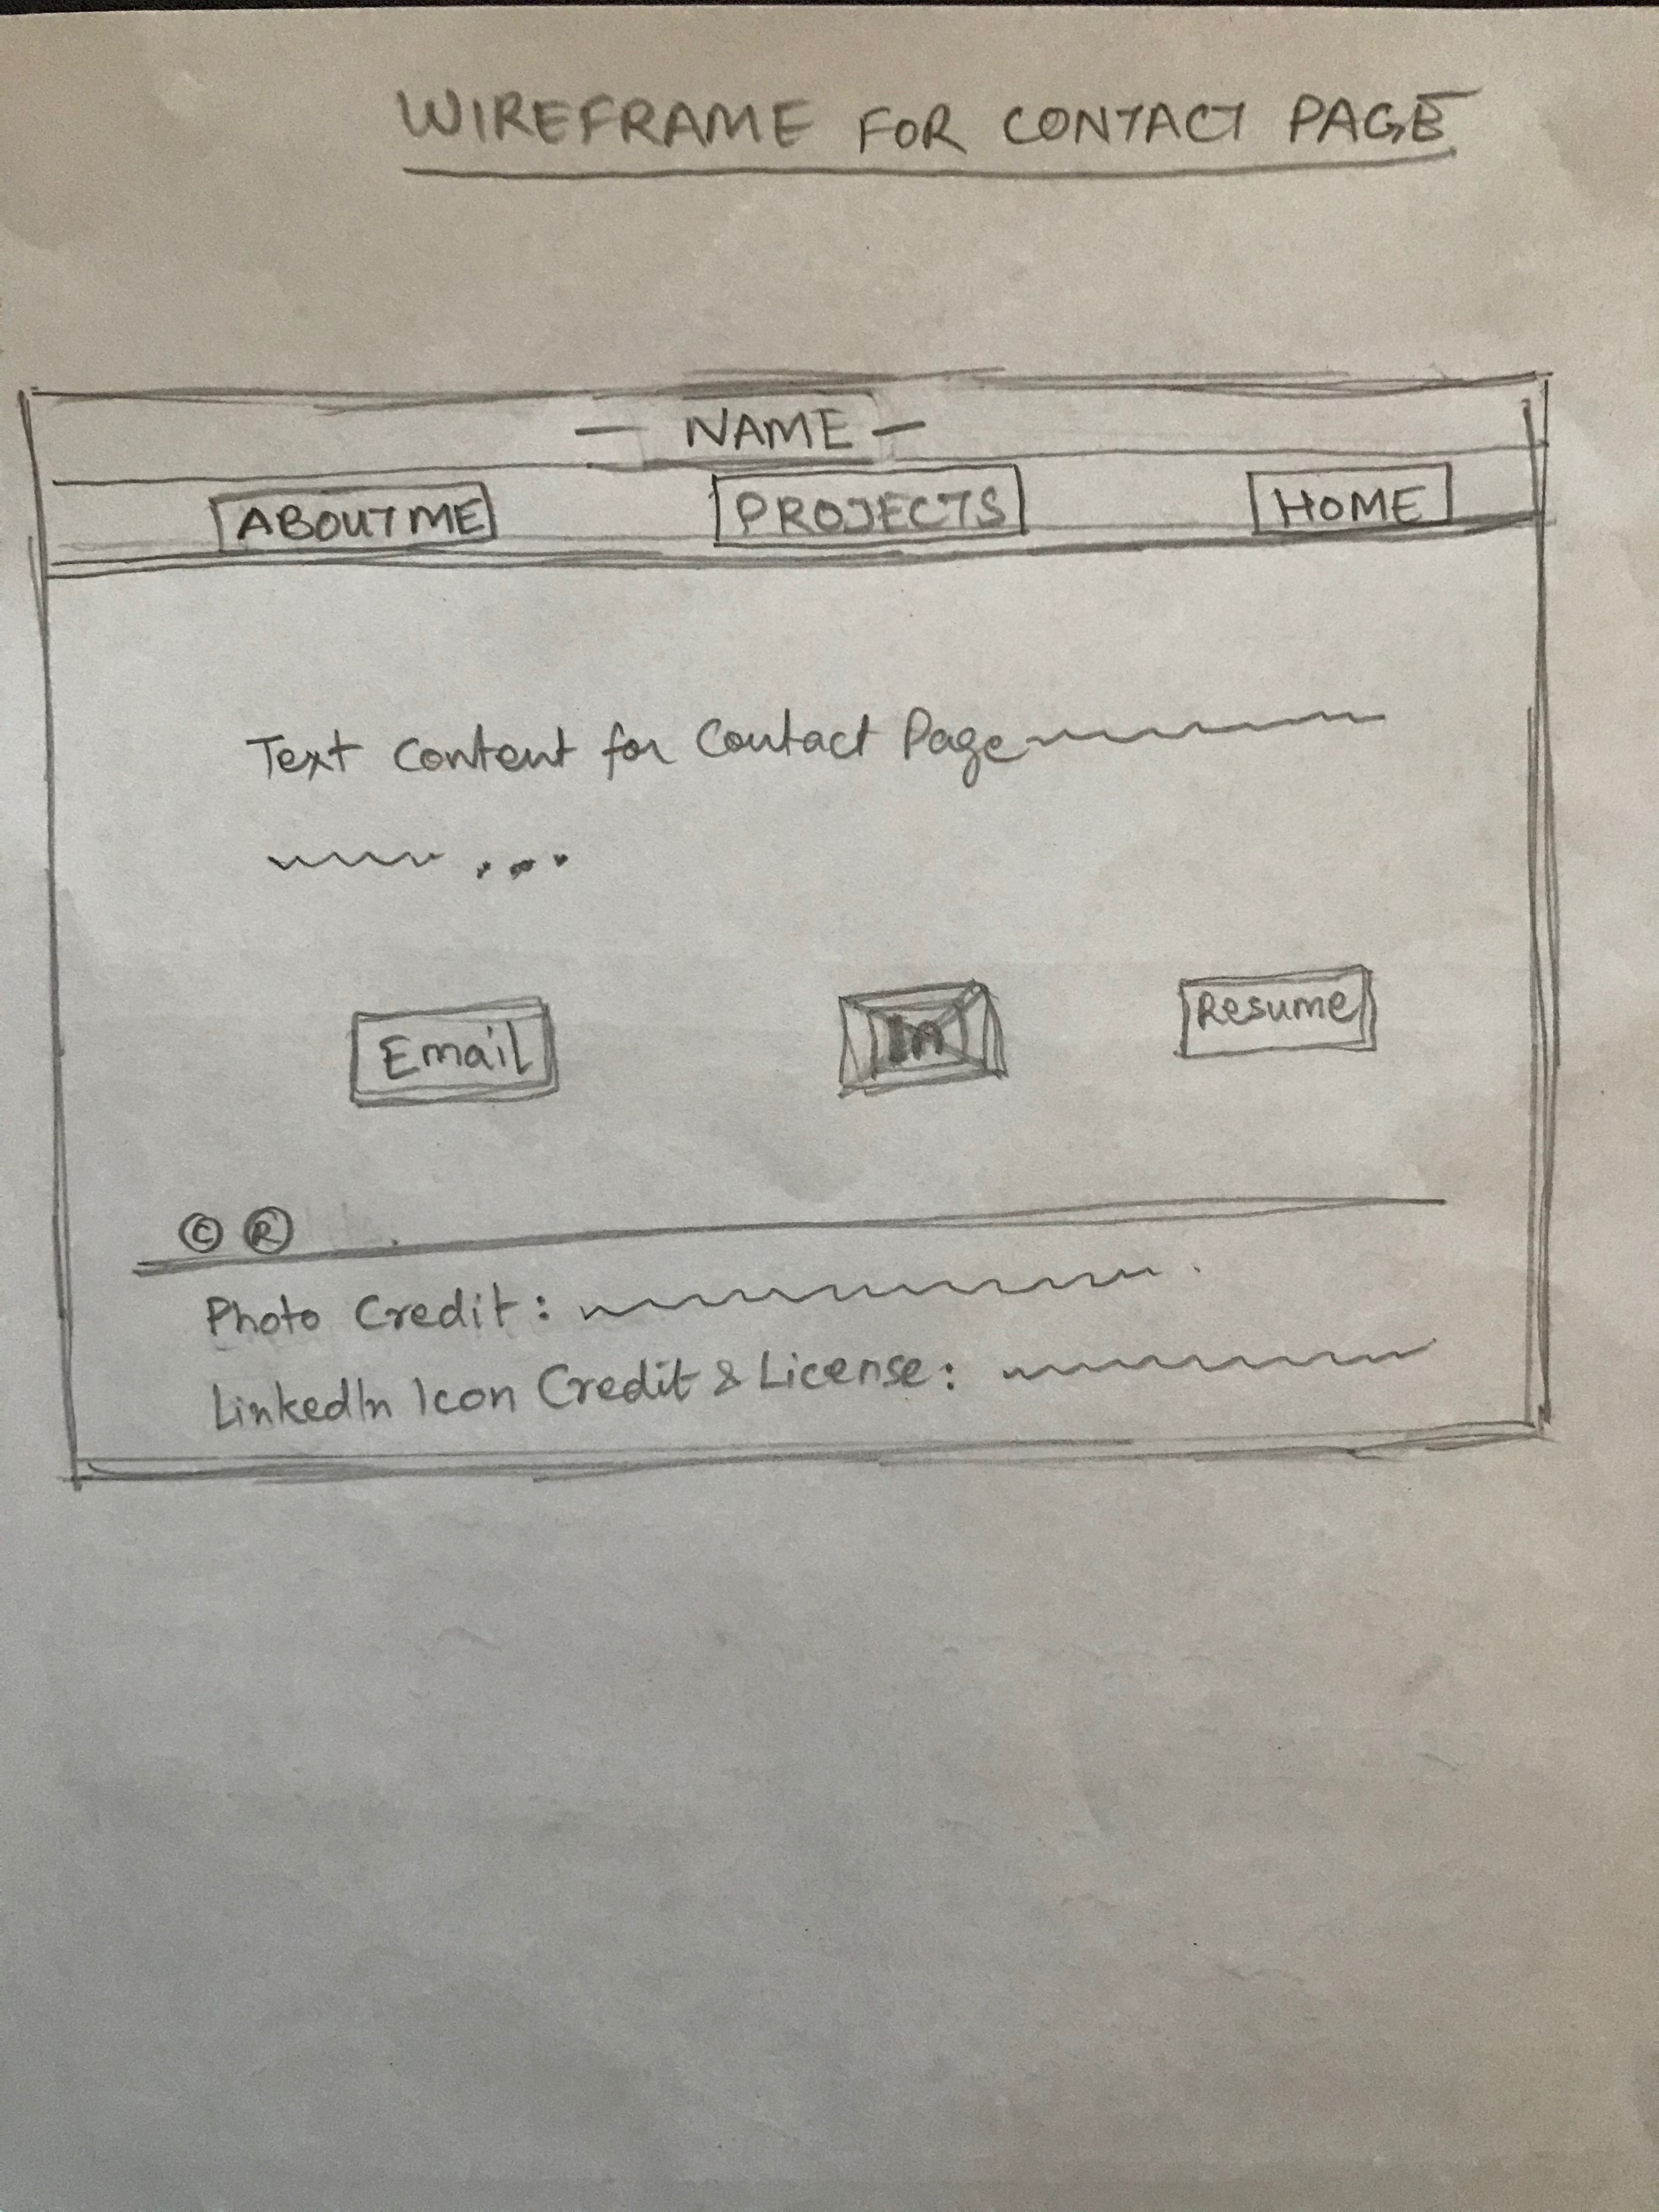 WIREFRAME FOR CONTACT PAGE
— NAME —
ABOUT ME PROJECTS HOME
Text Content for Contact Page
...
Email In Resume
© ®
Photo Credit:
LinkedIn Icon Credit & License: